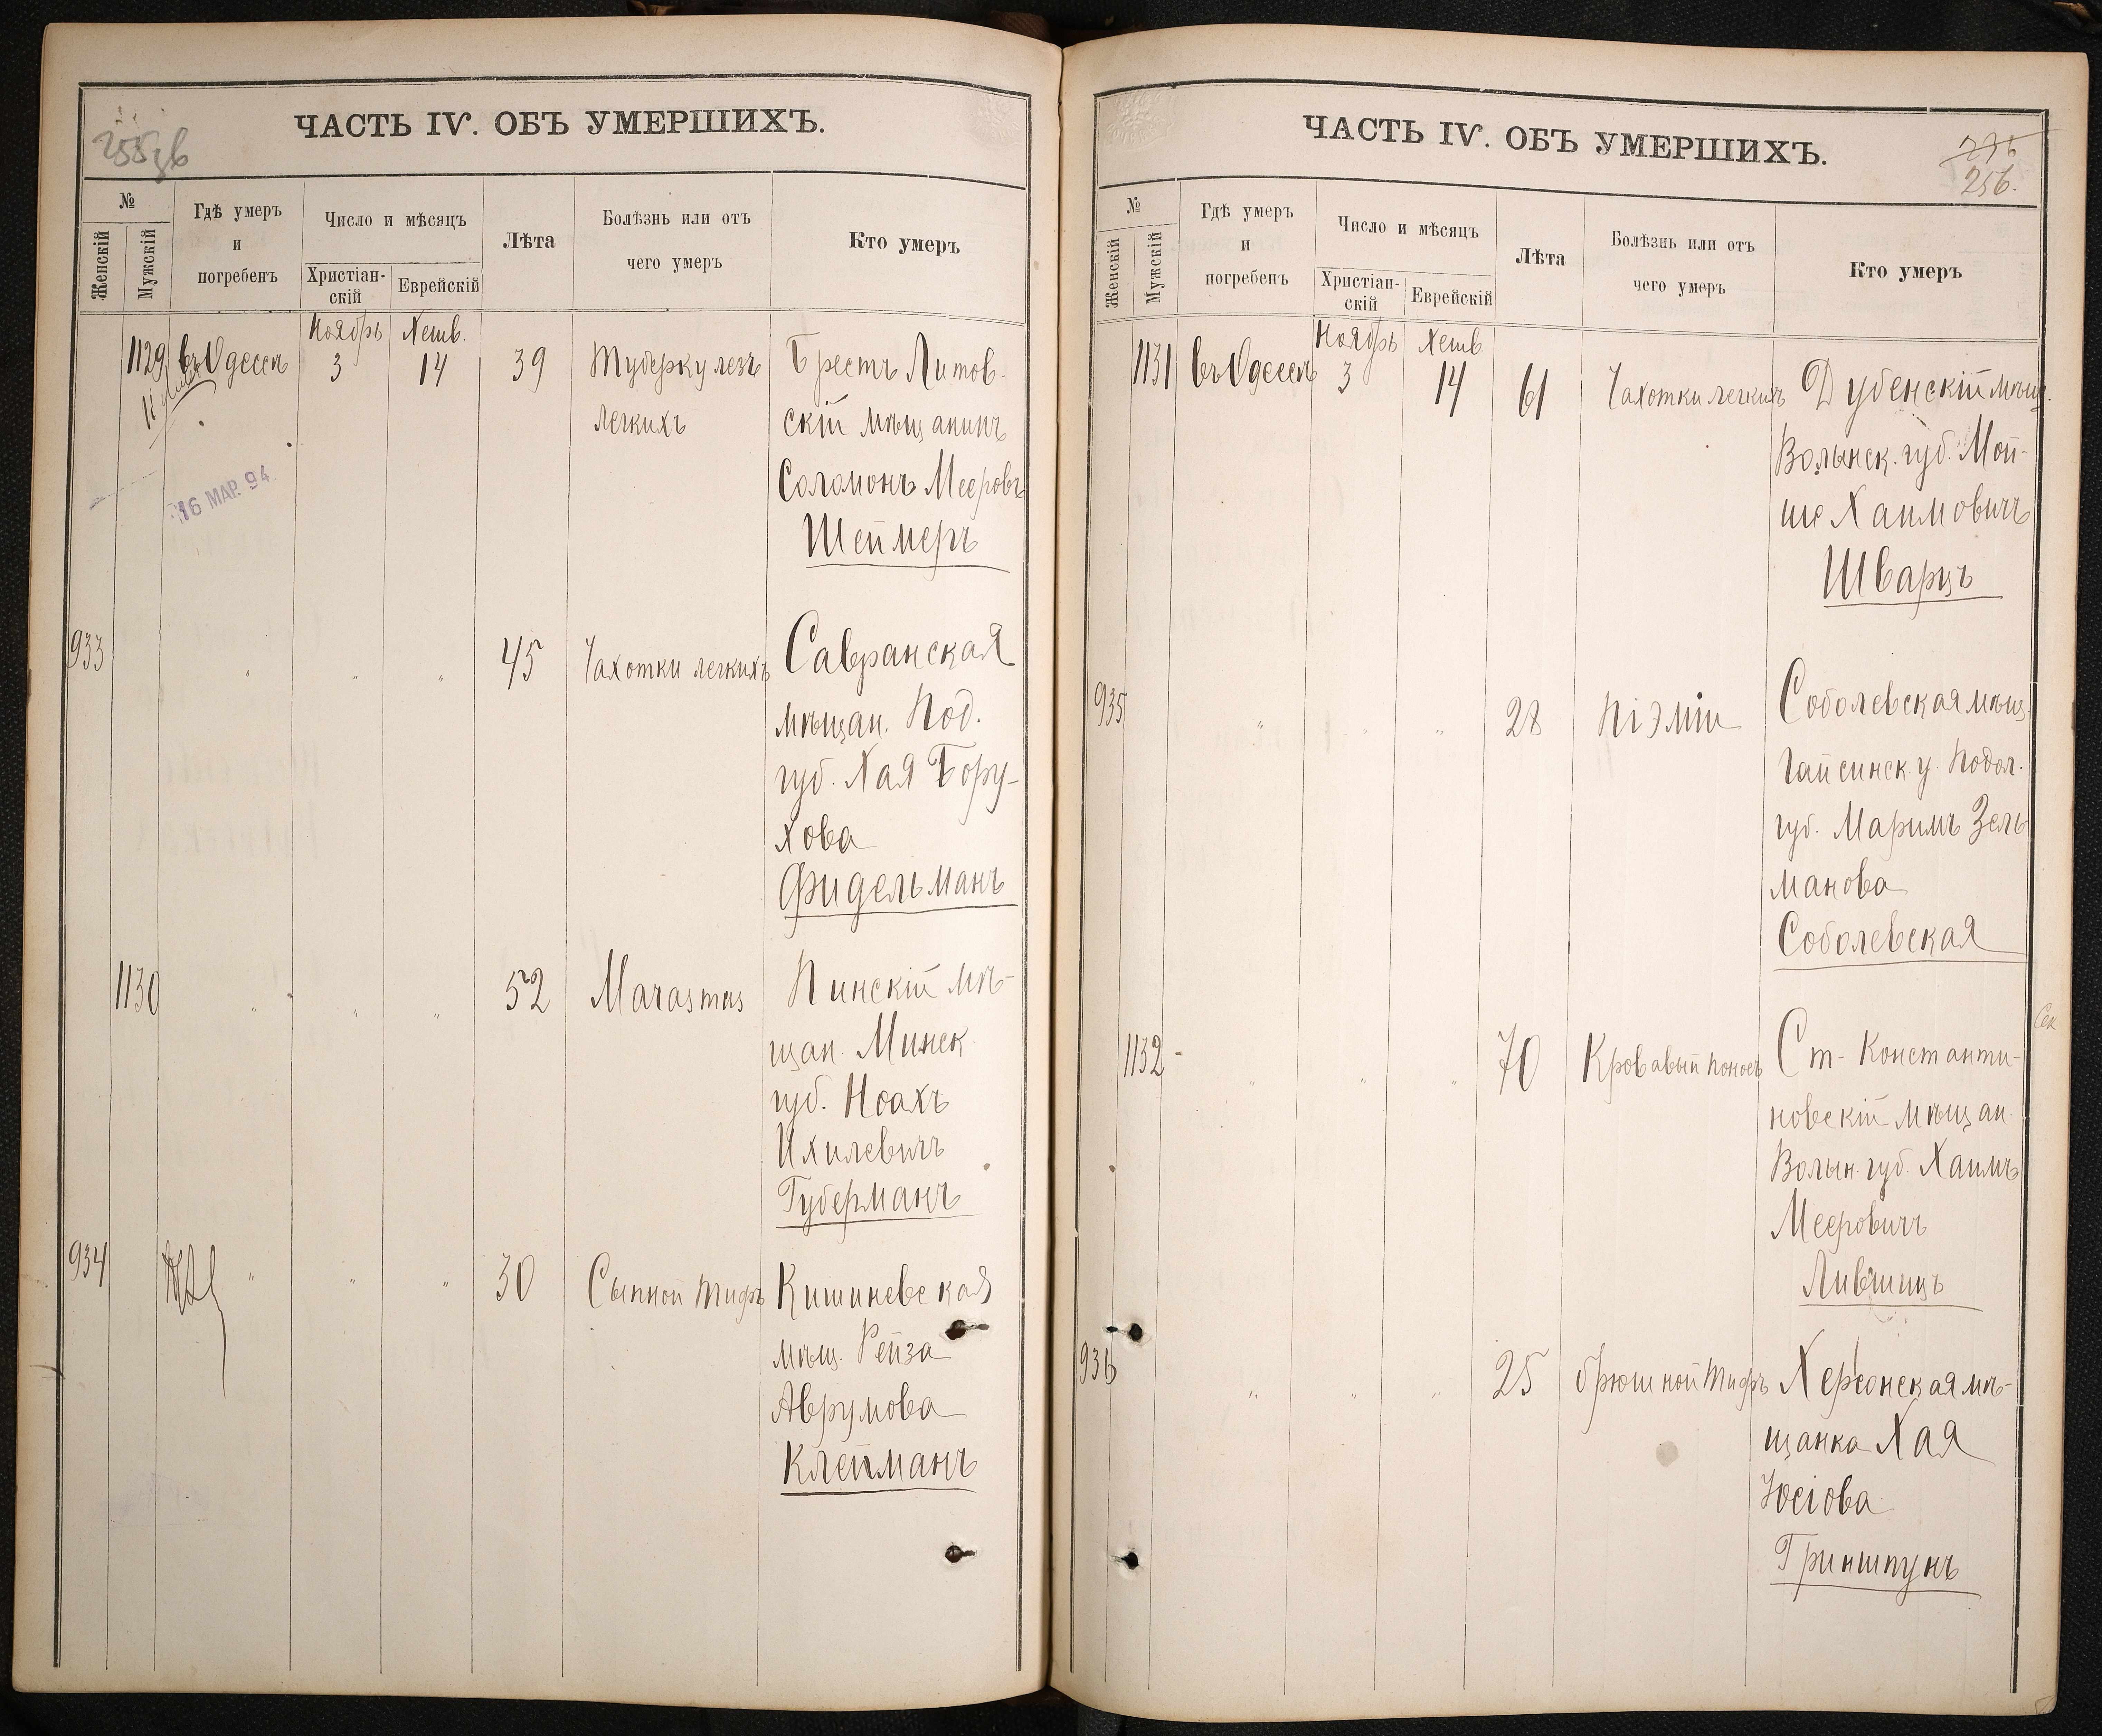 ЧАСТЬ IV. ОБЪ УМЕРШИХЪ.
№
Женскій
Мужскій
Гдѣ умеръ
и
погребенъ
Число и мѣсяцъ
Христіан-
скій
Еврейскій
Лѣта
Болѣзнь или отъ
чего умеръ
Кто умеръ
Ноябрь Хешв.
1129 въ Одессѣ 3 14 39 Туберкулезъ Брестъ Литов-
легкихъ скій мѣщанинъ
16 МАР. 94
Соломонъ Мееровъ
Шеймеръ
933 " " " 45 Чахотки легкихъ Савранская
мѣщан. Под.
губ. Хая Бору-
хова
Фидельманъ
1130 " " " 52 Marasmus Пинскій мѣ-
щан. Минск
губ. Ноахъ
Ихилевичъ
Губерманъ
934 " " " 30 Сыпной тифъ Кишиневская
мѣщ. Рейза
Аврумова
Клейманъ
ЧАСТЬ IV. ОБЪ УМЕРШИХЪ.
256.
№
Женскій
Мужскій
Гдѣ умеръ
и
погребенъ
Число и мѣсяцъ
Христіан-
скій
Еврейскій
Лѣта
Болѣзнь или отъ
чего умеръ
Кто умеръ
Ноябрь Хешв
1131 въ Одессѣ 3 14 61 Чахотки легкихъ Дубенскій мѣщ.
Волынск. губ. Мой-
ше Хаимовичъ
Шварцъ
935 " " " 28 Піэміи Соболевская мѣщ.
Гайсинск. у. Подол.
губ. Маримъ Зель
манова
Соболевская
1132 - " " " 70 Кровавый поносъ Ст- Константи-
новскій мѣщан.
Волын. губ. Хаимъ
Мееровичъ
Лившицъ
936 " " " 25 брюшной тифъ Херсонская мѣ-
щанка Хая
Іосіова
Гриншпунъ